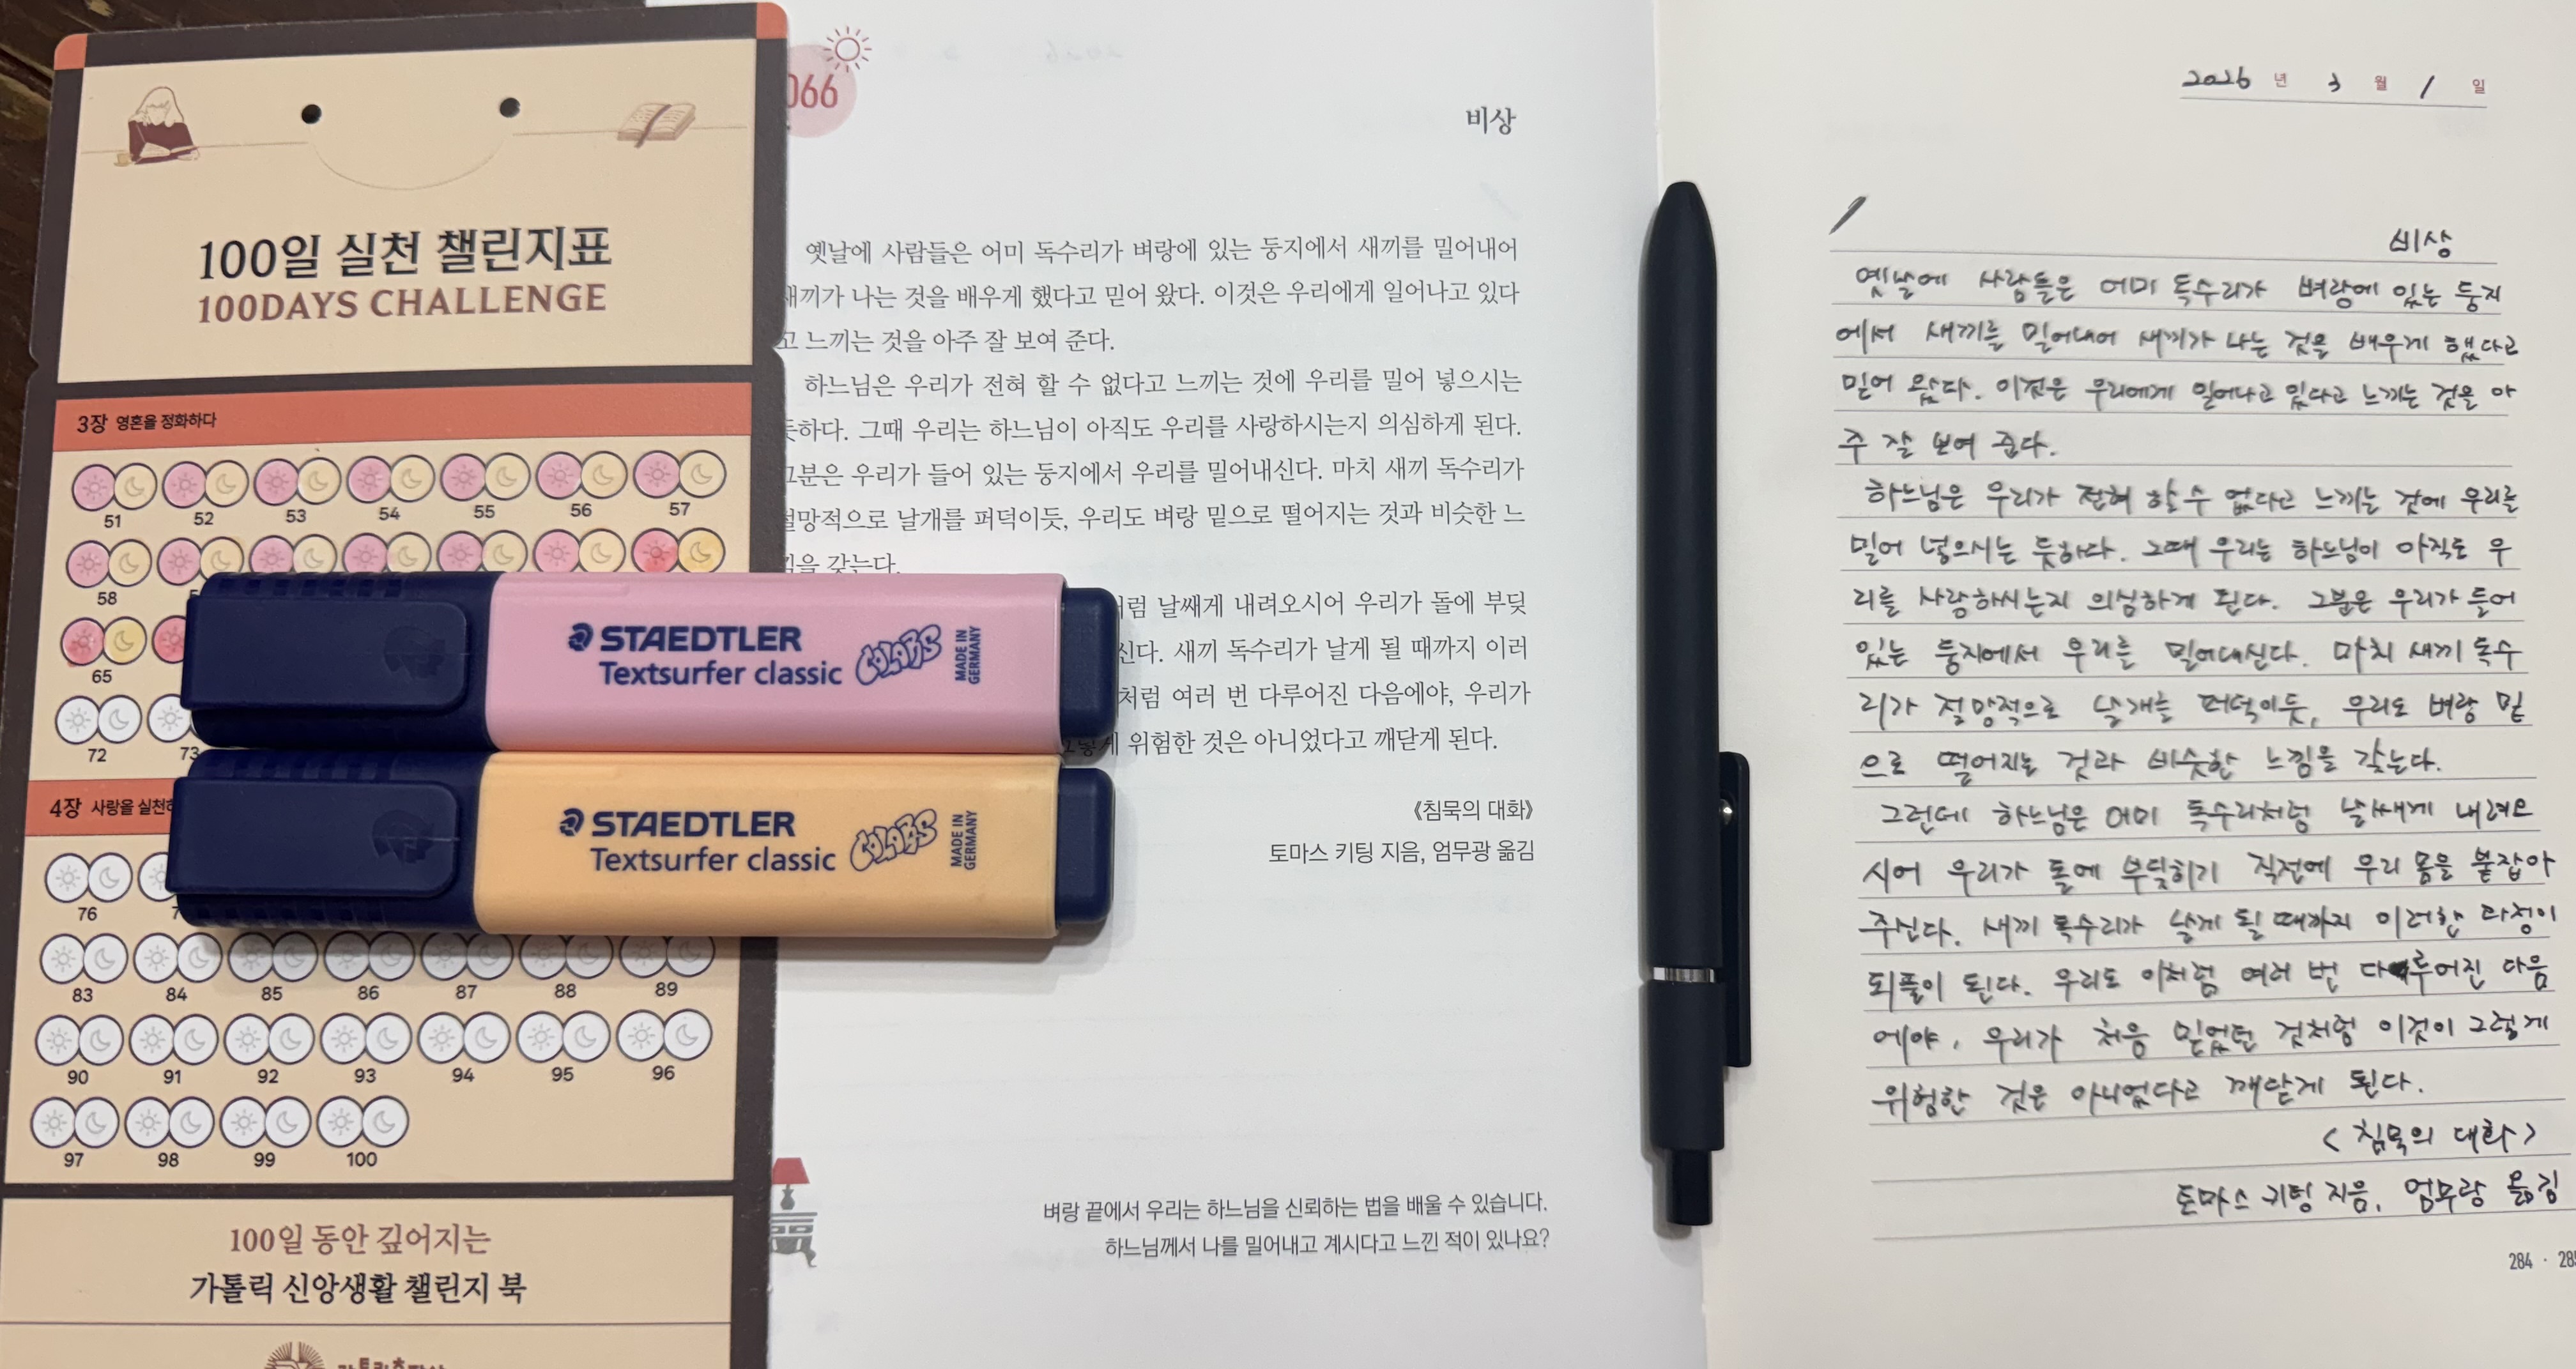 100일 실천 챌린지표
100DAYS CHALLENGE
3장 영혼을 정화하다
51 52 53 54 55 56 57
58
65
72 73
4장 사랑을
76
83 84 85 86 87 88 89
90 91 92 93 94 95 96
97 98 99 100
100일 동안 깊어지는
가톨릭 신앙생활 챌린지 북
STAEDTLER
Textsurfer classic COLORS MADE IN GERMANY
STAEDTLER
Textsurfer classic COLORS MADE IN GERMANY
066
비상
옛날에 사람들은 어미 독수리가 벼랑에 있는 둥지에서 새끼를 밀어내어
새끼가 나는 것을 배우게 했다고 믿어 왔다. 이것은 우리에게 일어나고 있다
고 느끼는 것을 아주 잘 보여 준다.
하느님은 우리가 전혀 할 수 없다고 느끼는 것에 우리를 밀어 넣으시는
듯하다. 그때 우리는 하느님이 아직도 우리를 사랑하시는지 의심하게 된다.
그분은 우리가 들어 있는 둥지에서 우리를 밀어내신다. 마치 새끼 독수리가
절망적으로 날개를 퍼덕이듯, 우리도 벼랑 밑으로 떨어지는 것과 비슷한 느
낌을 갖는다.
날쌔게 내려오시어 우리가 돌에 부딪
신다. 새끼 독수리가 날게 될 때까지 이러
처럼 여러 번 다루어진 다음에야, 우리가
위험한 것은 아니었다고 깨닫게 된다.
《침묵의 대화》
토마스 키팅 지음, 엄무광 옮김
벼랑 끝에서 우리는 하느님을 신뢰하는 법을 배울 수 있습니다.
하느님께서 나를 밀어내고 계시다고 느낀 적이 있나요?
2026 년 3 월 1 일
비상
옛날에 사람들은 어미 독수리가 벼랑에 있는 둥지
에서 새끼를 밀어내어 새끼가 나는 것을 배우게 했다고
믿어 왔다. 이것은 우리에게 일어나고 있다고 느끼는 것을 아
주 잘 보여 준다.
하느님은 우리가 전혀 할 수 없다고 느끼는 것에 우리를
밀어 넣으시는 듯하다. 그때 우리는 하느님이 아직도 우
리를 사랑하시는지 의심하게 된다. 그분은 우리가 들어
있는 둥지에서 우리를 밀어내신다. 마치 새끼 독수
리가 절망적으로 날개를 퍼덕이듯, 우리도 벼랑 밑
으로 떨어지는 것과 비슷한 느낌을 갖는다.
그런데 하느님은 어미 독수리처럼 날쌔게 내려오
시어 우리가 돌에 부딪히기 직전에 우리 몸을 붙잡아
주신다. 새끼 독수리가 날게 될 때까지 이러한 과정이
되풀이 된다. 우리도 이처럼 여러 번 다루어진 다음
에야, 우리가 처음 믿었던 것처럼 이것이 그렇게
위험한 것은 아니었다고 깨닫게 된다.
<침묵의 대화>
토마스 키팅 지음, 엄무랑 옮김
284 · 285